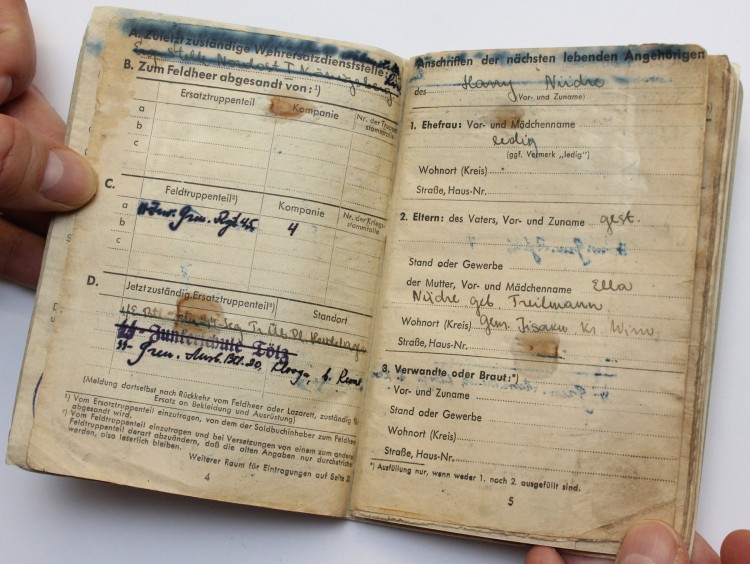 A. Zuletzt zuständige Wehrersatzdienststelle:
Erg. Stelle Nordost I Königsberg
B. Zum Feldheer abgesandt von:¹)
Ersatztruppenteil
Kompanie
Nr. der Truppen-
stammrolle
a
b
c
C.
Feldtruppenteil²)
Kompanie
Nr. der Kriegs-
stammrolle
a
Gren. Rgt 45
4
b
c
D.
Jetzt zuständig. Ersatztruppenteil³)
Standort
Junkerschule Tölz
Gren. Ausb. Btl. 20,
(Meldung dortselbst nach Rückkehr vom Feldheer oder Lazarett, zuständig für
Ersatz an Bekleidung und Ausrüstung)
¹) Vom Ersatztruppenteil einzutragen, von dem der Soldbuchinhaber zum Feldheer
abgesandt wird.
²) Vom Feldtruppenteil einzutragen und bei Versetzungen von einem zum anderen
Feldtruppenteil derart abzuändern, daß die alten Angaben nur durchstrichen
werden, also leserlich bleiben.
Weiterer Raum für Eintragungen auf Seite
4
Anschriften der nächsten lebenden Angehörigen
des Harry Nüdre
(Vor- und Zuname)
1. Ehefrau: Vor- und Mädchenname
ledig
(ggf. Vermerk „ledig")
Wohnort (Kreis)
Straße, Haus-Nr.
2. Eltern: des Vaters, Vor- und Zuname gest.
Stand oder Gewerbe
der Mutter, Vor- und Mädchenname Ella
Nüdre geb. Treilmann
Wohnort (Kreis) Gem. Iisaku Kr. Wiru
Straße, Haus-Nr.
3. Verwandte oder Braut:*)
Vor- und Zuname
Stand oder Gewerbe
Wohnort (Kreis)
Straße, Haus-Nr.
*) Ausfüllung nur, wenn weder 1. noch 2. ausgefüllt sind.
5